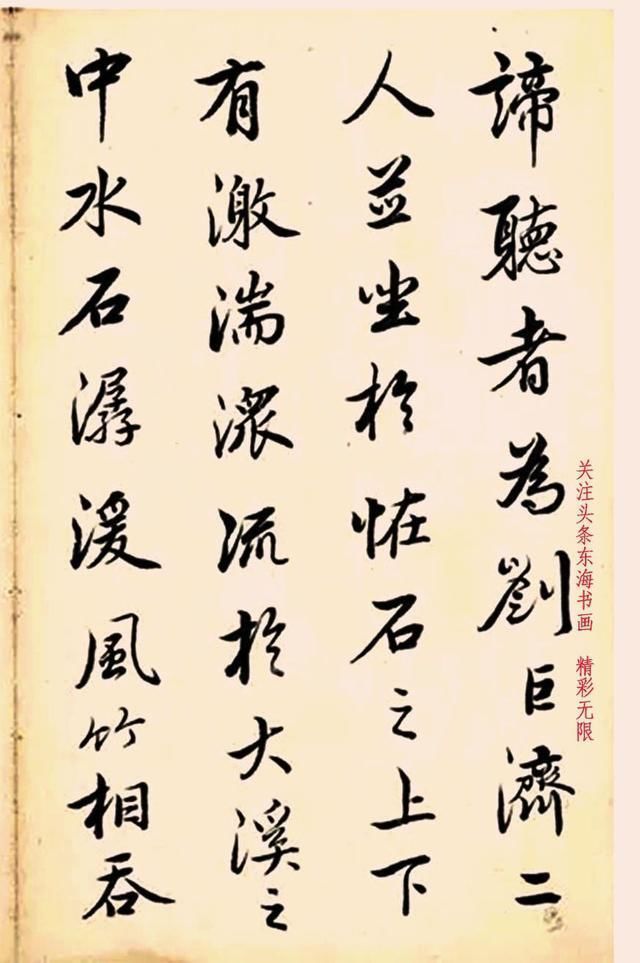 諦聽者為劉巨濟二
人並坐於恠石之上下
有激湍潨流於大溪之
中水石潺湲風竹相吞
关注头条东海书画 精彩无限